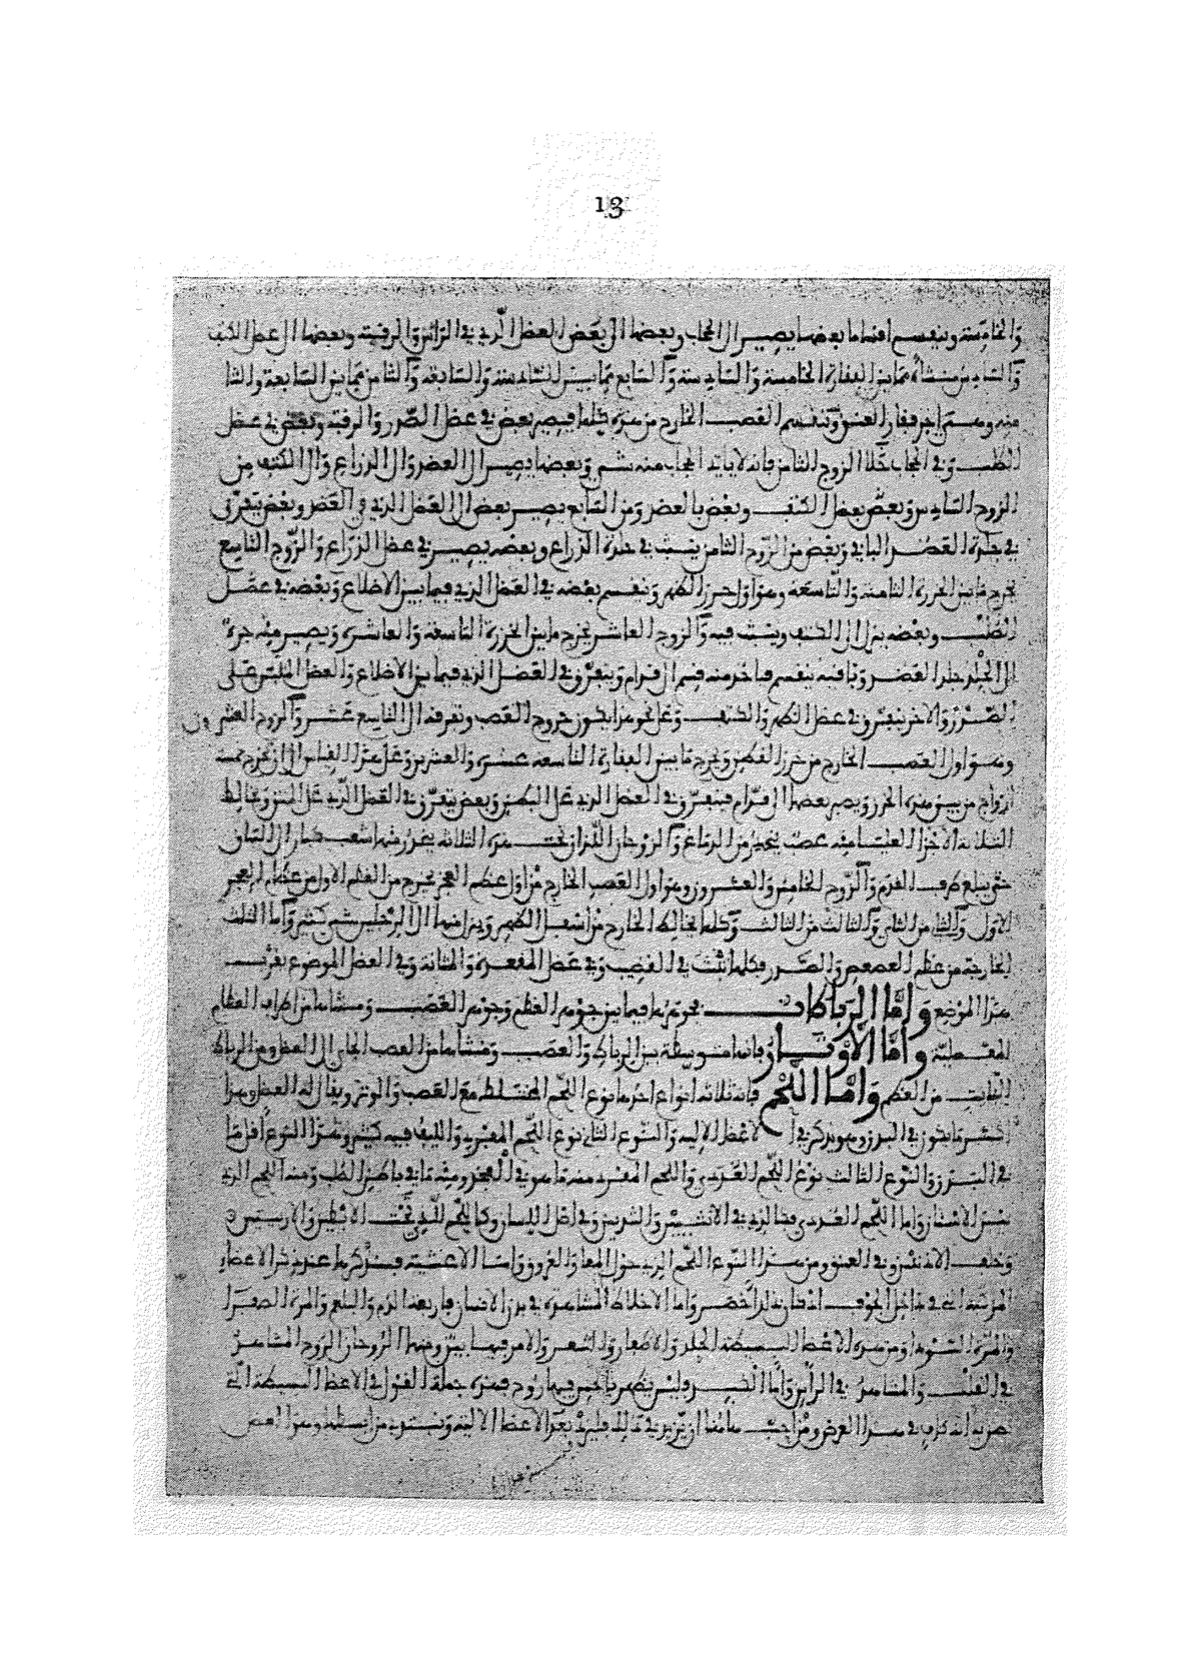 13
والخامسة وينقسم اقساما بعضها يصير الى الحجاب وبعضها الى بعض العضل الذي في الرأس والرقبة وبعضها الى عضل الكتف
والسادس منشأه مما بين الفقارة الخامسة والسادسة والسابع مما بين السادسة والسابعة والثامن مما بين السابعة والثا
منه وهي اخر فقار العنق وتنقسم العصب الخارج من هذه كلها فيصير بعض في عضل الصدر والرقبة وبعض في عضل
الصلب وفي الحجاب خلا الزوج الثامن فانه لا ياتي الحجاب منه شيء وبعضها يصير الى العضد والى الذراع والى الكتف من
الزوج السادس وبعض بعضل الكتف وبعض بالعضد ومن السابع يصير بعض الى العضل الذي في العضد وبعض يتفرق
في جلدة العضد الباقي وبعض من الزوج الثامن ينبث في جلدة الذراع وبعضه يصير في عضل الذراع والزوج التاسع
يخرج ما بين الخرزة الثامنة والتاسعة وهو اول خرز الظهر وينقسم بعضه في العضل الذي فيما بين الاضلاع وبعضه في عضل
الصلب وبعضه ينزل الى الكتف وينبث فيه والزوج العاشر يخرج ما بين الخرزة التاسعة والعاشرة ويصير منه جزء
الى الجلد جلد العضد وباقيه ينقسم فياخذ منه قسم الى قدام ويتفرق في العضل الذي فيما بين الاضلاع والعضل الملبس على
الصدر والاخر يتفرق في عضل الظهر والكتف وعلى نحو هذا يكون خروج العصب وتفرقه الى التاسع عشر والزوج العشرون
وهو اول العصب الخارج من خرز القطن ويخرج ما بين الفقارة التاسعة عشرة والعشرين وعلى هذا القياس الى ان تخرج خمسة
ازواج من بين هذه الخرز ويصير بعضها الى قدام فيتفرق في العضل الذي على البطن وبعض يتفرق في العضل الذي على المتن ويخالط
الثلاثة الاجزا العليا منه عصب ينحدر من الدماغ والزوجان اللذان تحت هذه الثلاثة ينحدر منها شعب كبار الى الساق
حتى يبلغ طرف القدم والزوج الخامس والعشرون وهو اول العصب الخارج من اول عظم العجز يخرج من العظم الاول من عظام العجز
الاول والثاني من الثاني والثالث من الثالث وكلها يخالط الخارج من اسفل الظهر وينزل منها الى الرجلين شيء كثير واما الثلث
الخارجة من عظم العصعص والصدر فكلها تنبث في القضيب وفي عضل المقعدة والمثانة وفي العضل الموضوع بقرب
هذا الموضع واما الرباطات فجوهرها فيما بين جوهر العظم وجوهر العصب ومنشاها من اطراف العظام
المفصلية واما الاوتار فانها متوسطة بين الرباط والعصب ومنشأها من العصب الجاي الى العضل ومن الرباط
النابت من العظم واما اللحم فانه ثلاثة انواع احدها نوع اللحم المختلط مع العصب والوتر ويقال له العضل وهذا
اكثر ما يكون في البدن وهو يذكر في الاعضا الالية والنوع الثاني نوع اللحم المفرد والليف فيه كثير وهذا النوع اقل ما
في البدن والنوع الثالث نوع اللحم الغددي واللحم المفرد منه ما هو في الفخذ ومنه ما في باطن الصلب ومنه اللحم الذي
بين الاسنان واما اللحم الغددي فبالذي في الانثيين والثديين وفي اصل اللسان وكاللحم الذي تحت الابطين والاربيتين
وخلف الاذنين وفي العنق ومن هذا النوع اللحم الذي حول المعا والعروق واما الاغشية فسنذكرها عند ذكر الاعضا
المركبة التي في داخل الجوف اذ كان ذلك اخصر واما الاخلاط المشاهدة في بدن الانسان فاربعة الدم والبلغم والمرة الصفرا
والمرة السودا ومن هذه الاعضا البسيطة الجلد والاظفار والشعر والامر فيها بين ومنها الروحان الروح المشاهد
في القلب والمشاهد في الرأس واما الكبد فليس يظهر بالحس فيها روح فهذه جملة القول في الاعضا البسيطة التي